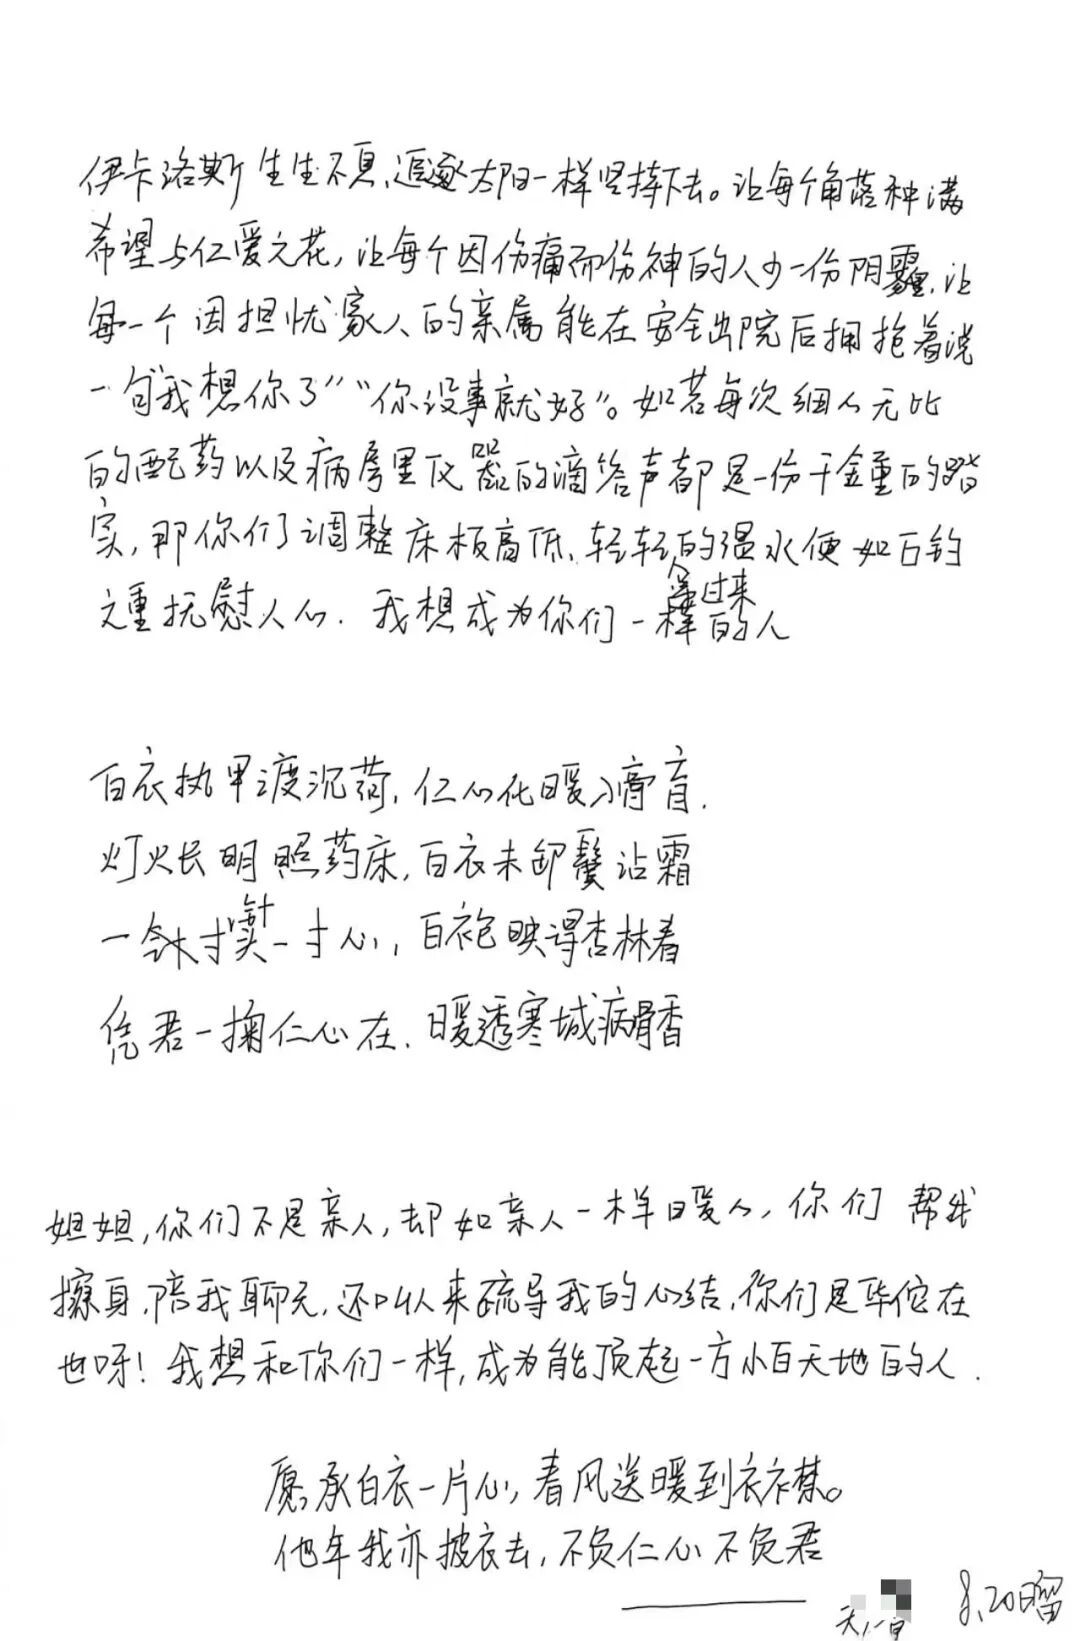 伊卡洛斯生生不息、追逐太阳一样坚持下去。让每个角落种满
希望与仁爱之花，让每个因伤痛而伤神的人少一份阴霾，让
每一个因担忧家人的亲属能在安全出院后拥抱着说
一句“我想你了”“你没事就好”。如若每次细人无比
的配药以及病房里仪器的滴答声都是一份千金重的踏
实，那你们调整床板高低、轻轻拿过来的温水便如百钧
之重抚慰人心．我想成为你们一样的人
白衣执甲渡沉荷，仁心化暖冰膏肓．
灯火长明照药床，白衣未卸鬓沾霜
一针一寸心，白袍映得杏林春
凭君一掬仁心在．暖透寒城病骨香
姐姐，你们不是亲人，却如亲人一样暖人，你们帮我
擦身，陪我聊天，还叫人来疏导我的心结，你们是华佗在
世呀！我想和你们一样，成为能顶起一方小白天地的人．
愿承白衣一片心，春风送暖到衣襟。
他年我亦披衣去，不负仁心不负君
8.20日留